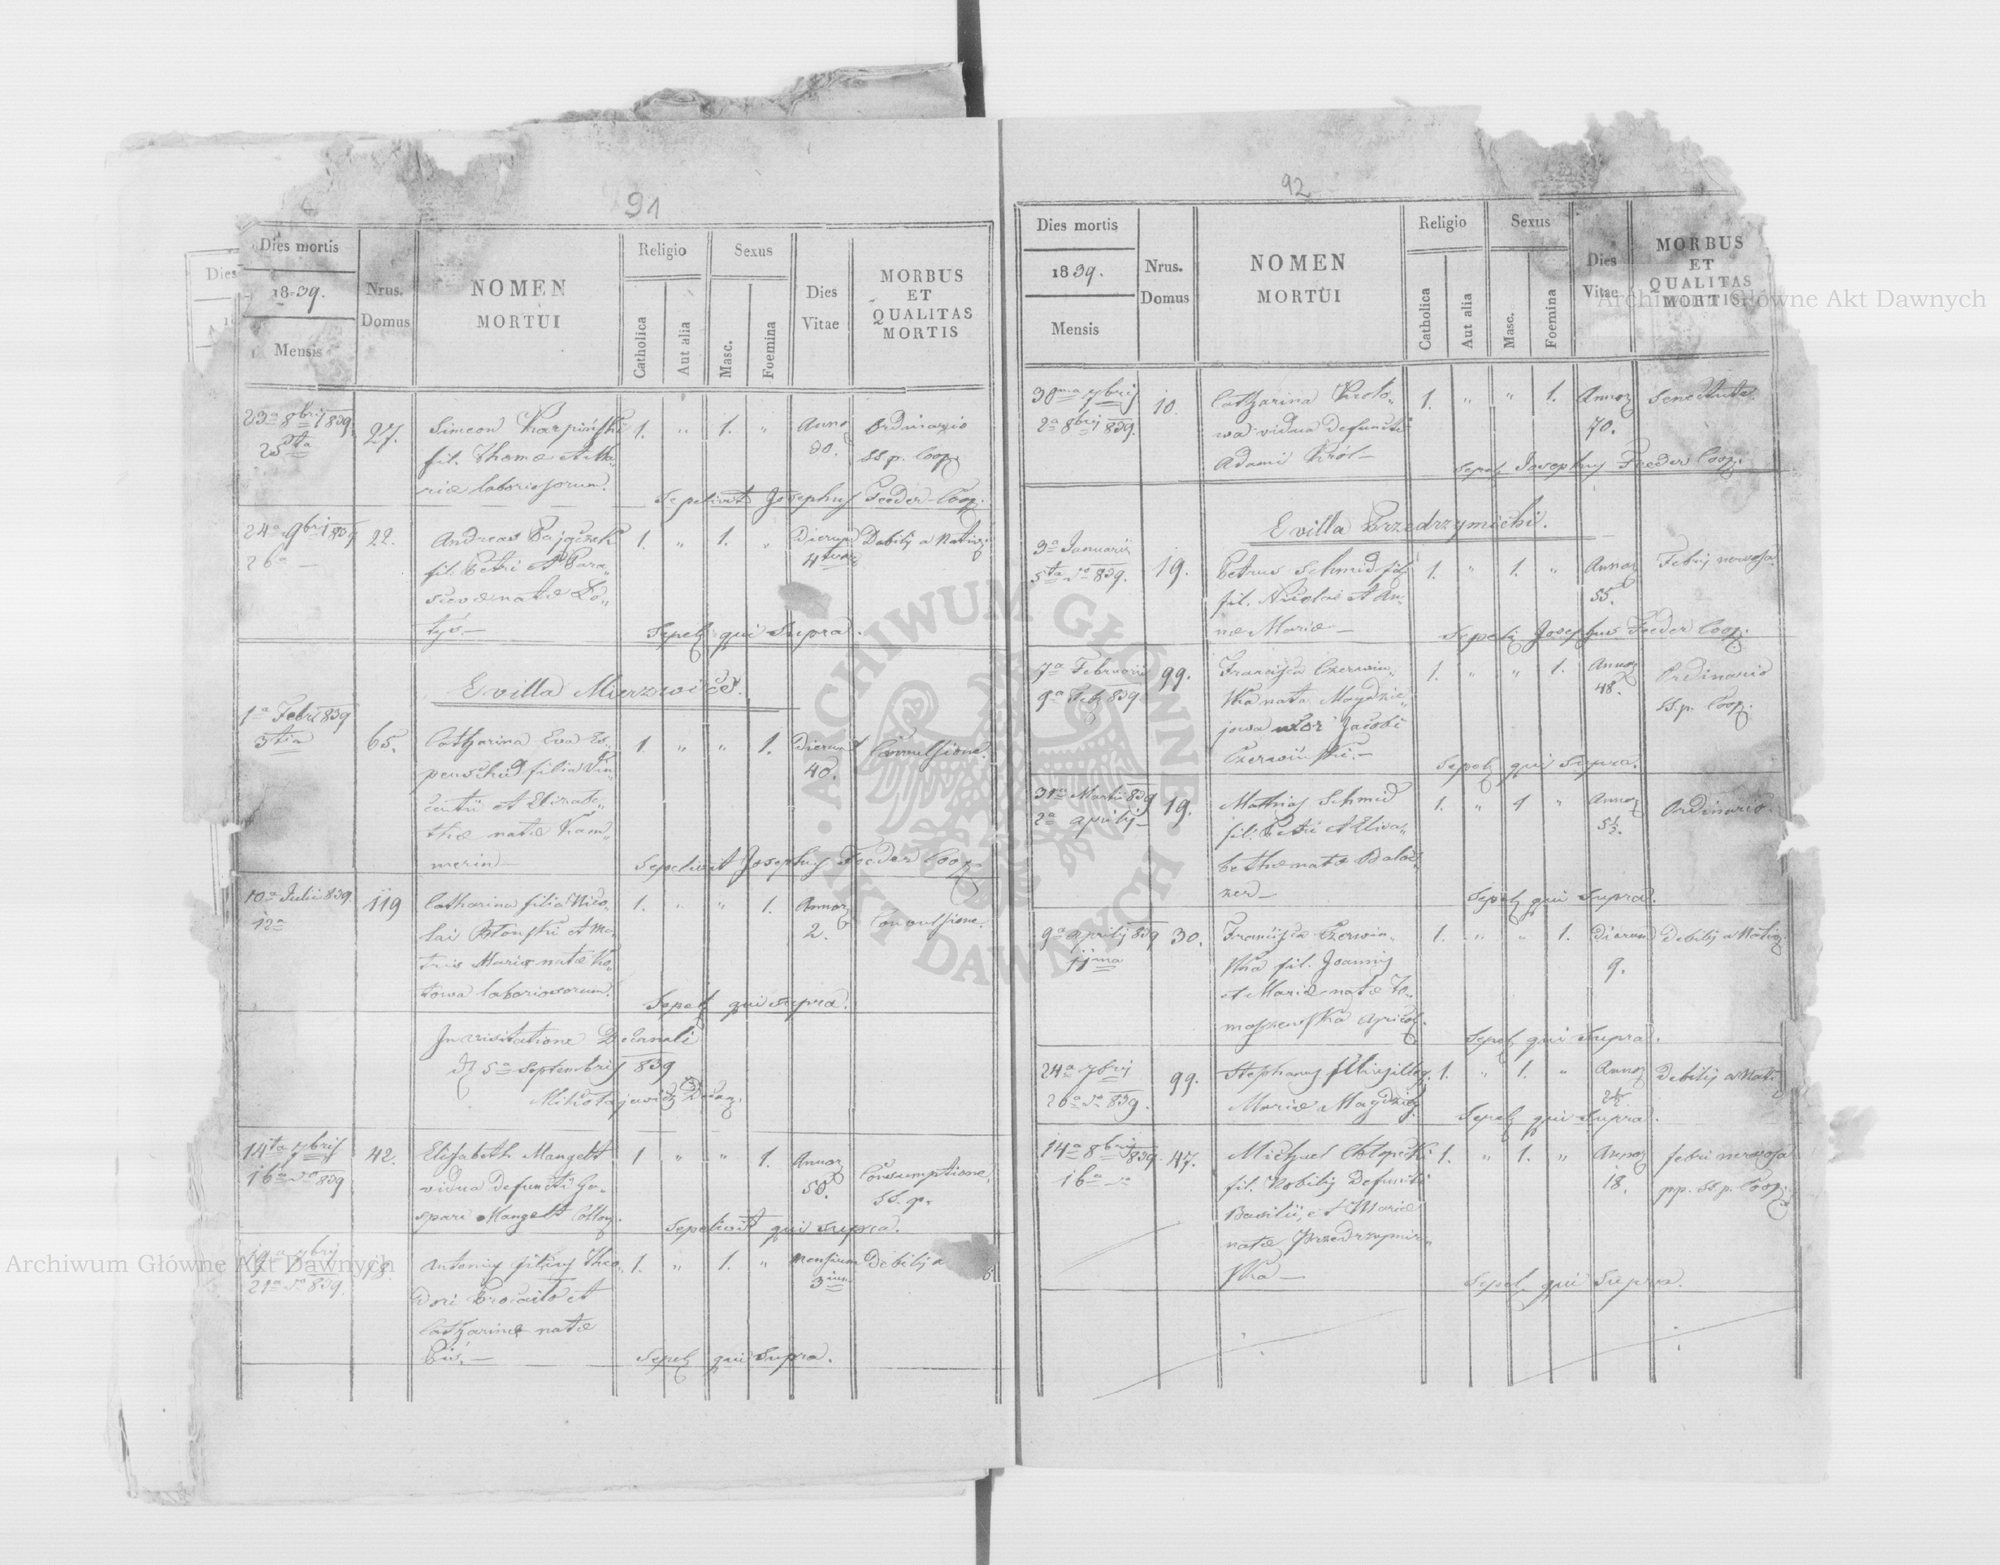 91
Dies mortis
1839.
Mensis
Nrus.
Domus
NOMEN
MORTUI
Religio
Catholica
Aut alia
Sexus
Masc.
Foemina
Dies
Vitae
MORBUS
ET
QUALITAS
MORTIS
23a 8bris 1839
25ta
27.
Simeon Karpiński
fil. Thomæ et Ma„
riæ laboriosorum.
1. „ 1. „
Anno
30.
Ordinario
SS. p. Coop.
Sepelivit Josephus Feeder Coop.
24a 9bri 1839
26a —
22.
Andreas Pajączek
fil. Petri et Para„
1. „ 1. „
Dierum
Debilis a Nativ.
Sepel. qui Supra.
E villa Mierzwice.
1a Febr. 839
3tia
65.
Catharina Eva
filia Vin„
centii et Elizabe„
thæ natæ Kam„
merin —
1. „ „ 1.
Dierum
40.
Convulsione.
Sepelivit Josephus Feeder Coop.
10a Julii 839
12a
119
Catharina filia Nico„
lai Błoński et Ma„
tris Mariæ natæ Ko„
towa laboriosorum.
1. „ „ 1.
Annor.
2.
Convulsione.
Sepel. qui supra.
In visitatione Decanali
d. 5a Septembris 839
Mikołajewicz Decan.
14ta 7bris
16a 839
42.
Elisabeth Mangelt
vidua defuncti Ga„
spari Mangelt
1 „ „ 1.
Annor.
50.
Consumptione.
Sepelivit qui supra.
19a 7bris
21a 839.
18.
Antonius filius Theo„
dori et
Catharinæ natæ
1. „ 1. „
Mensium
3ium
Debilis a
Sepel. qui Supra.
92
Dies mortis
1839.
Mensis
Nrus.
Domus
NOMEN
MORTUI
Religio
Catholica
Aut alia
Sexus
Masc.
Foemina
Dies
Vitae
MORBUS
ET
QUALITAS
MORTIS
30ma 7bris
2a 8bris 839.
10.
Catharina Krolo„
wa vidua defuncti
Adami Król —
1. „ „ 1.
Annor.
70.
Senectute
Sepel. Josephus Feeder Coop.
E villa Przedrzymichi.
3a Januarii
5ta 839.
19.
Petrus Schmid fil.
fil. Nicolai et An„
næ Mariæ —
1. „ 1. „
Annor.
55.
Febris nervosa.
Sepel. Josephus Feeder Coop.
7a Februarii
9a Feb. 839
99.
Francisca Czerwin„
ska nata Magdzie„
jowa uxor Jacobi
Czerwiński. —
1. „ „ 1.
Annor.
48.
Ordinario
SS. p. Coop.
Sepel. qui supra.
31a Martii 839
2a Aprilis —
19.
Mathias Schmid
fil. Petri et Elisa„
bethæ natæ
1. „ 1 „
Annor.
5½.
Ordinario.
Sepel. qui supra.
9a Aprilis 839
11ma
30.
Francisca Czerwin„
ska fil. Joannis
et Mariæ natæ To„
maszewska Agricol.
1. „ „ 1.
Dierum
9.
Debilis a Nativ.
Sepel. qui Supra.
24a 7bris
26a 839.
99.
Stephanus
Mariæ Magdziej.
1. „ 1. „
Annor.
2½
Debilis a Nati
Sepel. qui Supra.
14a 8bris 839.
16a
47.
Michael Chłopecki
fil. Nobilis Defuncti
Basilii, et Mariæ
natæ Przedrzymir„
ska —
1. „ 1. „
Annor.
18.
febri nervosa
pp. SS. p. Coop.
Sepel. qui Supra.
Archiwum Główne Akt Dawnych
Archiwum Główne Akt Dawnych
ARCHIWUM GŁÓWNE AKT DAWNYCH